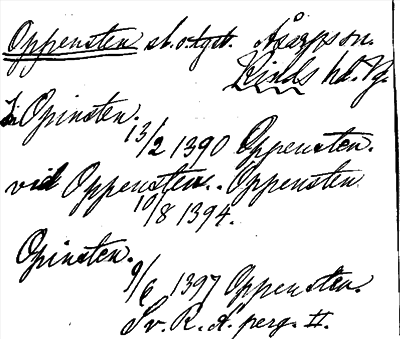 Oppensten sl. o. tgt. Åsarps sn.
Kinds hd. Vg.
I Opinsten.
13/2 1390 Oppensten.
vid Oppensten. Oppensten
10/8 1394.
Opinsten.
9/6 1397 Oppensten.
Sv. R. A. perg. II.